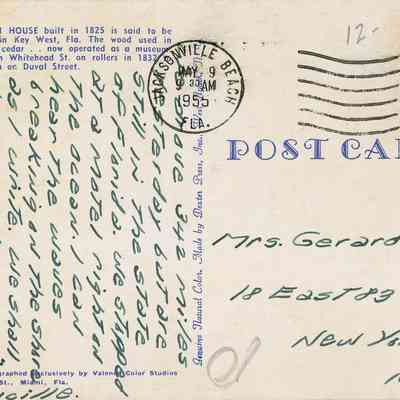 HOUSE built in 1825 is said to be
in Key West, Fla. The wood used in
cedar . . now operated as a museum
Whitehead St. on rollers in 1832
on Duval Street.
JACKSONVILLE BEACH
MAY 9
9 AM
1955
FLA.
12-
drove 342 miles
yesterday but are
still in the state
of Florida. We stopped
at a motel right on
the ocean. I can
hear the waves
breaking on the shore
as I write. We shall
Genuine Natural Color. Made by Dexter Press, Inc.
POST CA
Mrs. Gerard
18 East 83
New York
graphed Exclusively by Valence Color Studios
St., Miami, Fla.